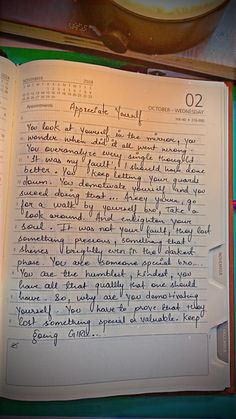 02
NOVEMBER 2024
OCTOBER - WEDNESDAY
Appointments
Appreciate Yourself
You look at yourself in the mirror, you
wonder when did it all went wrong.
You overanalyze every single thought
'It was my fault', I should have done
better. You keep letting your guards
down. You demotivate yourself and you
sucked doing that... Heey you're, go
for a walk by yourself bro, take a
look around. And enlighten your
soul. It was not your fault, they lost
something precious, something that
shines brightly even in the darkest
phase. You are someone special bro...
You are the humblest, kindest, you
have all that quality that one should
have. So, why are you demotivating
yourself. You have to prove that they
lost something special & valuable. Keep
going GIRL...